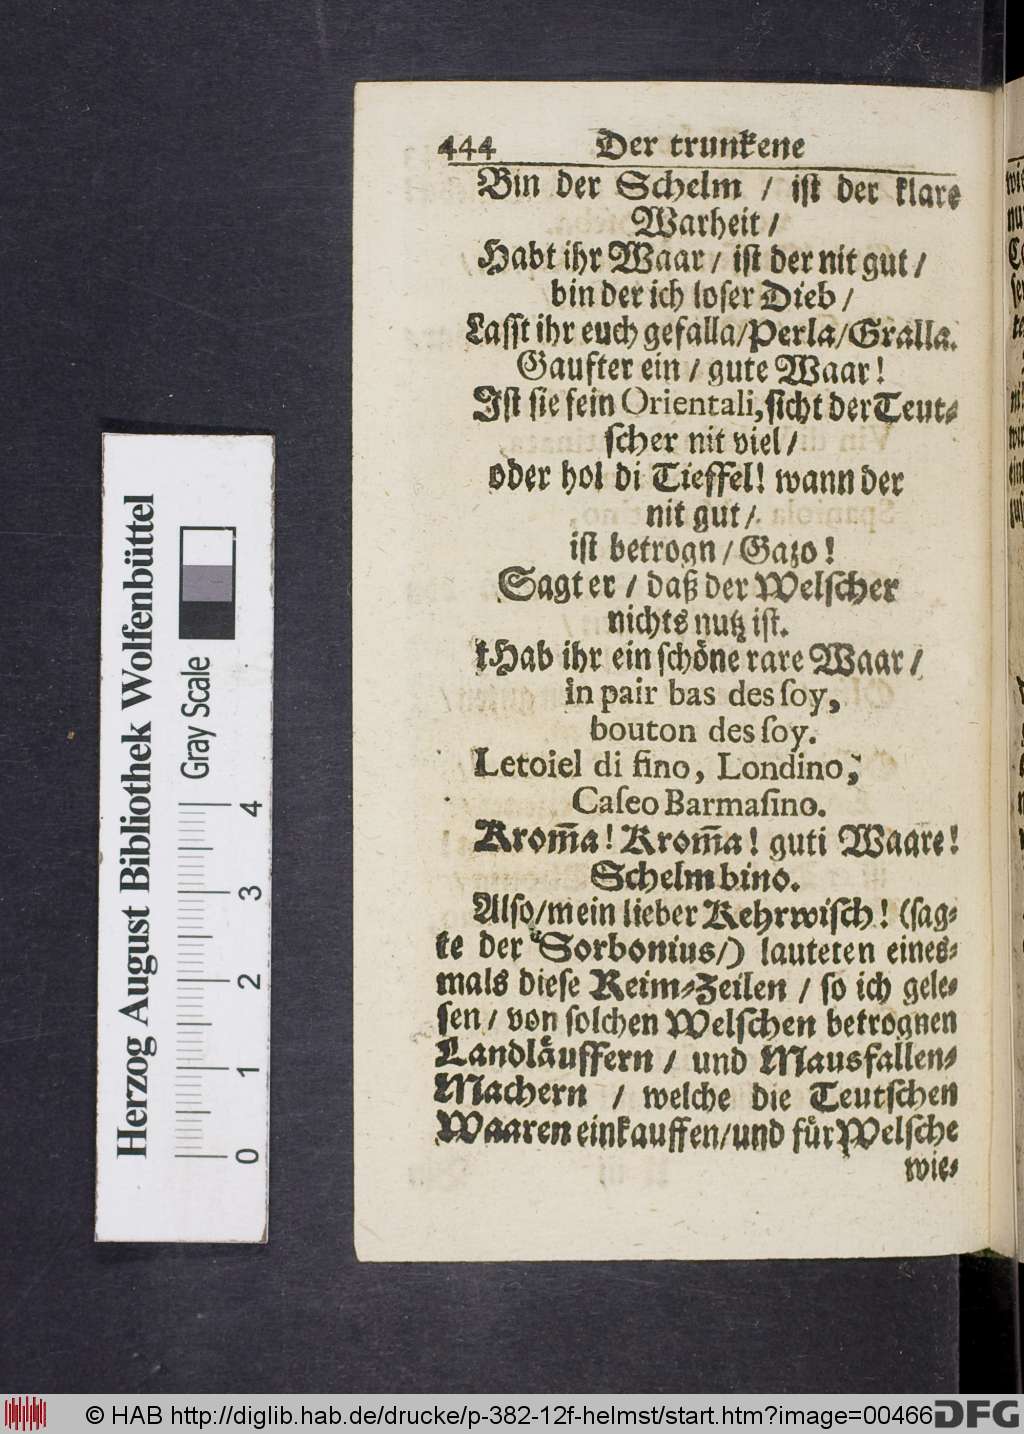 444 Der trunkene
Bin der Schelm / iſt der klare
Warheit /
Habt ihr Waar / iſt der nit gut /
bin der ich loſer Dieb /
Laſſt ihr euch gefalla/Perla/Gralla.
Gaufter ein / gute Waar!
Iſt ſie fein Orientali, ſicht der Teut⸗
ſcher nit viel /
oder hol di Tieffel! wann der
nit gut /
iſt betrogn / Gazo!
Sagt er / daß der Welſcher
nichts nutz iſt.
Hab ihr ein ſchöne rare Waar /
in pair bas des ſoy,
bouton des ſoy.
Letoiel di fino, Londino,
Caſeo Barmaſino.
Krom̃a! Krom̃a! guti Waare!
Schelmbino.
Alſo/mein lieber Kehrwiſch! (ſag⸗
te der Sorbonius/) lauteten eines⸗
mals dieſe Reim⸗Zeilen / ſo ich gele⸗
ſen / von ſolchen Welſchen betrognen
Landläuffern / und Mausfallen⸗
Machern / welche die Teutſchen
Waaren einkauffen/und für Welſche
wie⸗
Herzog August Bibliothek Wolfenbüttel
Gray Scale
0 1 2 3 4
© HAB http://diglib.hab.de/drucke/p-382-12f-helmst/start.htm?image=00466
DFG